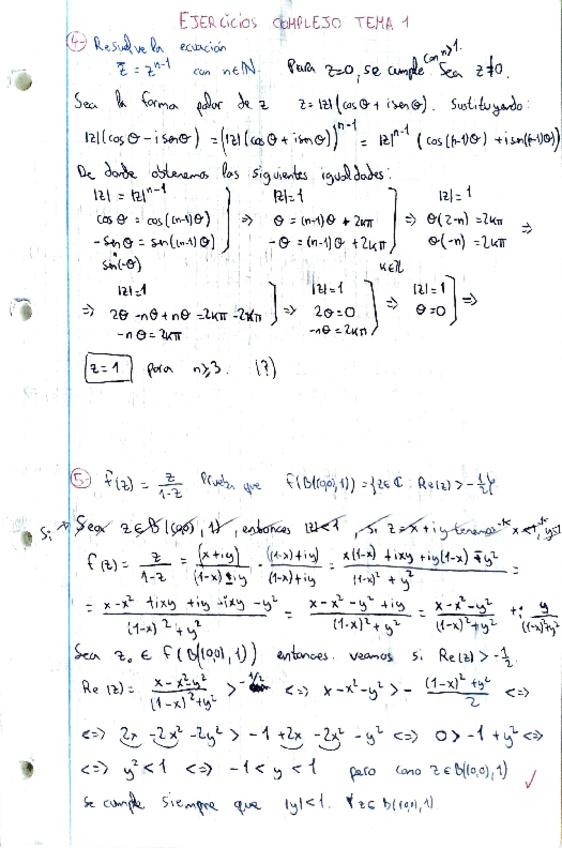 EJERCICIOS COMPLEJO TEMA 1
4.- Resuelve la ecuación
z̄ = z^{n-1} con n∈ℕ. Para z=0, se cumple con n>1. Sea z≠0.
Sea la forma polar de z z=|z|(cosθ+isenθ). Sustituyendo:
|z|(cosθ - isenθ) = (|z|(cosθ+isenθ))^{n-1} = |z|^{n-1} (cos(n-1)θ + isen(n-1)θ)
De donde obtenemos las siguientes igualdades:
|z| = |z|^{n-1} |z|=1 |z|=1
cosθ = cos((n-1)θ) ⇒ θ = (n-1)θ + 2kπ ⇒ θ(2-n) = 2kπ ⇒
-senθ = sen((n-1)θ) -θ = (n-1)θ + 2kπ θ(-n) = 2kπ
sin(-θ) k∈ℤ
|z|=1 |z|=1 |z|=1
⇒ 2θ - nθ + nθ = 2kπ - 2kπ ⇒ 2θ=0 ⇒ θ=0 ⇒
-nθ = 2kπ -nθ = 2kπ
z=1 para n≥3. (?)
5.- f(z) = z/(1-z) Prueba que f(B((0,0),1)) = {z∈ℂ : Re(z) > -1/2}
Si Sea z∈B((0,0),1), entonces |z|<1, si z=x+iy tenemos x<1, y<1
f(z) = z/(1-z) = (x+iy)/((1-x)-iy) · ((1-x)+iy)/((1-x)+iy) = (x(1-x) + ixy + iy(1-x) - y²)/((1-x)² + y²) =
= (x-x² + ixy + iy - ixy - y²)/((1-x)² + y²) = (x-x²-y²+iy)/((1-x)²+y²) = (x-x²-y²)/((1-x)²+y²) + i y/((1-x)²+y²)
Sea z₀ ∈ f(B((0,0),1)) entonces veamos si Re(z) > -1/2.
Re(z) = (x-x²-y²)/((1-x)²+y²) > -1/2 <=> x-x²-y² > - ((1-x)²+y²)/2 <=>
<=> 2x - 2x² - 2y² > -1 + 2x - 2x² - y² <=> 0 > -1 + y² <=>
<=> y² < 1 <=> -1 < y < 1 pero como z∈B((0,0),1)
se cumple siempre que |y|<1. ∀z∈B((0,0),1)